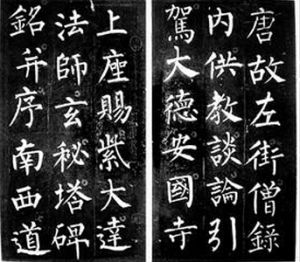 唐故左街僧錄
內供教談論引
駕大德安國寺
上座賜紫大達
法師玄秘塔碑
銘并序南西道